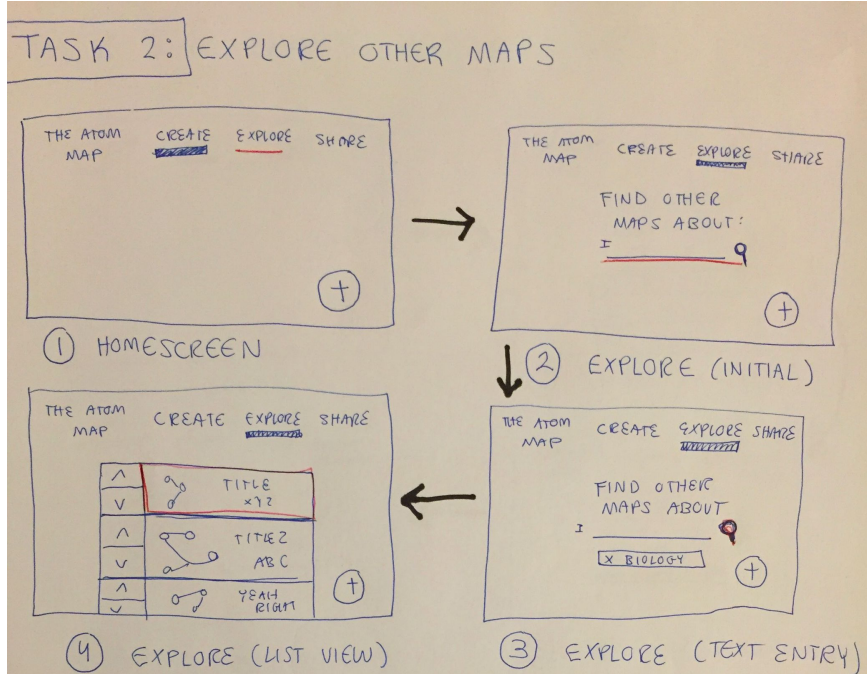 TASK 2: EXPLORE OTHER MAPS
THE ATOM CREATE EXPLORE SHARE
MAP
+
1 HOMESCREEN
THE ATOM CREATE EXPLORE SHARE
MAP
FIND OTHER
MAPS ABOUT:
I
+
2 EXPLORE (INITIAL)
THE ATOM CREATE EXPLORE SHARE
MAP
FIND OTHER
MAPS ABOUT
I
X BIOLOGY
+
3 EXPLORE (TEXT ENTRY)
THE ATOM CREATE EXPLORE SHARE
MAP
TITLE
XYZ
TITLE 2
ABC
YEAH
RIGHT
+
4 EXPLORE (LIST VIEW)